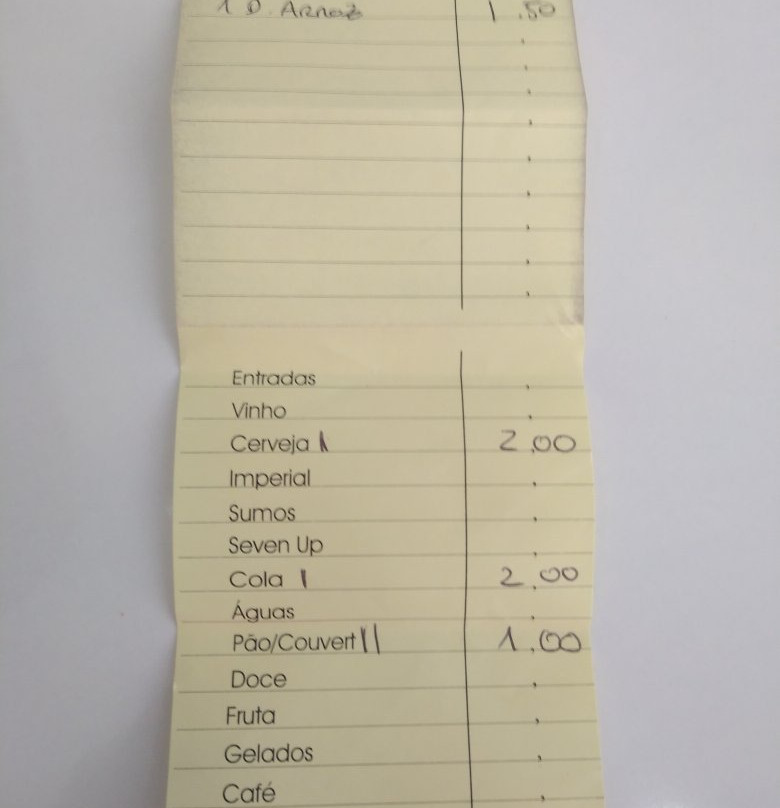 1 D. Arroz 1.50
Entradas
Vinho
Cerveja 1 2,00
Imperial
Sumos
Seven Up
Cola 1 2,00
Águas
Pão/Couvert 11 1,00
Doce
Fruta
Gelados
Café